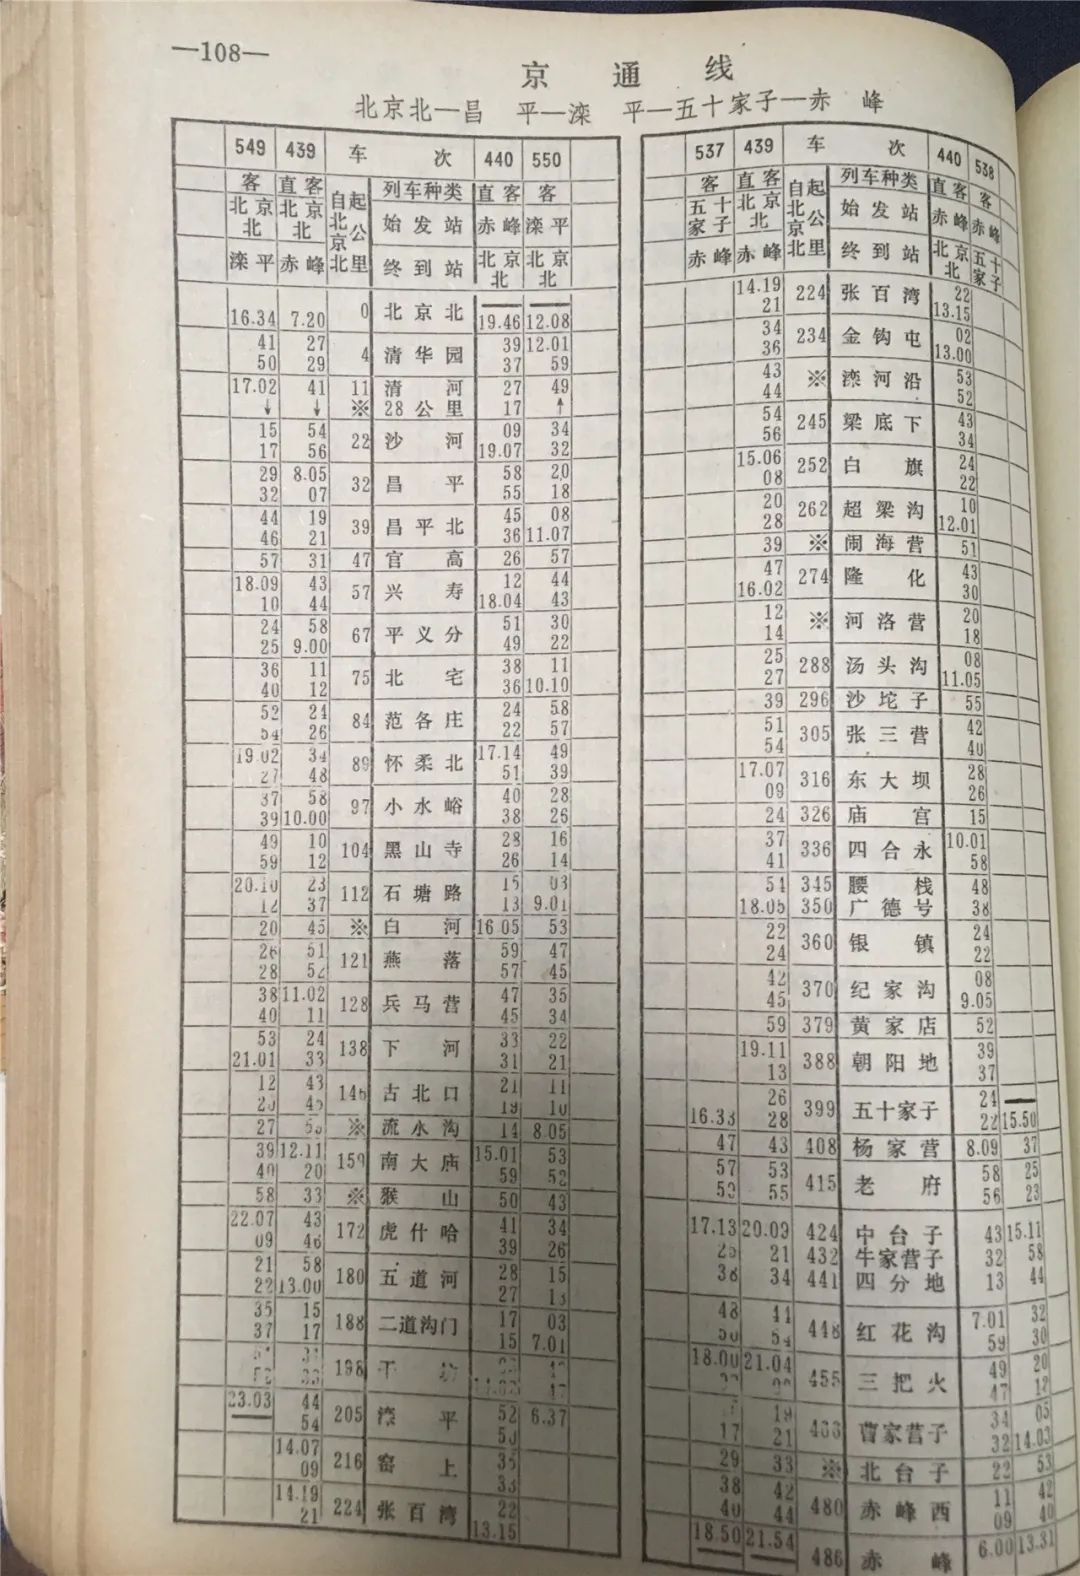 —108—
京 通 线
北京北—昌 平—滦 平—五十家子—赤 峰
549 439 车 次 440 550
客 直客 自北京北起公里 列车种类 直客 客
北京北 北京北 始发站 赤峰 滦平
滦平 赤峰 终到站 北京北 北京北
16.34 7.20 0 北京北 19.46 12.08
41 27 39 12.01
4 清华园
50 29 37 59
17.02 41 11 清 河 27 49
↓ ↓ ※ 28公里 17 ↑
15 54 09 34
22 沙 河
17 56 19.07 32
29 8.05 58 20
32 昌 平
32 07 55 18
44 19 45 08
39 昌平北
46 21 36 11.07
57 31 47 官 高 26 57
18.09 43 12 44
57 兴 寿
10 44 18.04 43
24 58 51 30
67 平义分
25 9.00 49 22
36 11 38 11
75 北 宅
40 12 36 10.10
52 24 24 58
84 范各庄
54 26 22 57
19.02 34 17.14 49
89 怀柔北
27 48 51 39
37 58 40 28
97 小水峪
39 10.00 38 26
49 10 28 16
104 黑山寺
59 12 26 14
20.10 23 15 03
112 石塘路
12 37 13 9.01
20 45 ※ 白 河 16 05 53
26 51 59 47
121 燕 落
28 52 57 45
38 11.02 47 35
128 兵马营
40 11 45 34
53 24 33 22
138 下 河
21.01 33 31 21
12 43 21 11
146 古北口
19 10
27 ※ 流水沟 14 8.05
39 12.11 15.01 53
159 南大庙
40 20 59 52
58 33 ※ 猴 山 50 43
22.07 43 41 34
172 虎什哈
09 46 39 26
21 58 28 15
180 五道河
22 13.00 27 13
35 15 17 03
188 二道沟门
37 17 15 7.01
198
23.03 44 52 6.37
205 滦 平
54 50
14.07 35
216 窑 上
09 33
14.19 22
224 张百湾
21 13.15
537 439 车 次 440 538
客 直客 自北京北起公里 列车种类 直客 客
五十家子 北京北 始发站 赤峰 赤峰
赤峰 赤峰 终到站 北京北 五十家子
14.19 22
224 张百湾
21 13.15
34 02
234 金钩屯
36 13.00
43 53
※ 滦河沿
44 52
54 43
245 梁底下
56 34
15.06 24
252 白 旗
08 22
20 10
262 超梁沟
28 12.01
39 ※ 闹海营 51
47 43
274 隆 化
16.02 30
12 20
※ 河洛营
14 18
25 08
288 汤头沟
27 11.05
39 296 沙坨子 55
51 42
305 张三营
54 40
17.07 28
316 东大坝
09 26
24 326 庙 宫 15
37 10.01
336 四合永
41 58
54 345 腰 栈 48
18.05 350 广德号 38
22 24
360 银 镇
24 22
42 08
370 纪家沟
45 9.05
59 379 黄家店 52
19.11 39
388 朝阳地
13 37
26 24
399 五十家子
16.33 28 22 15.50
47 43 408 杨家营 8.09 37
57 53 58 25
415 老 府
55 56 23
17.13 20.09 424 中台子 43 15.11
21 432 牛家营子 32 58
38 34 441 四分地 13 44
48 41 7.01 32
448 红花沟
50 54 59 30
18.00 21.04 49 20
455 三把火
47
19 34 05
曹家营子
17 21 32 14.03
29 33 ※ 北台子 22 53
38 42 11 42
480 赤峰西
40 44 09 40
18.50 21.54 486 赤 峰 6.00 13.31